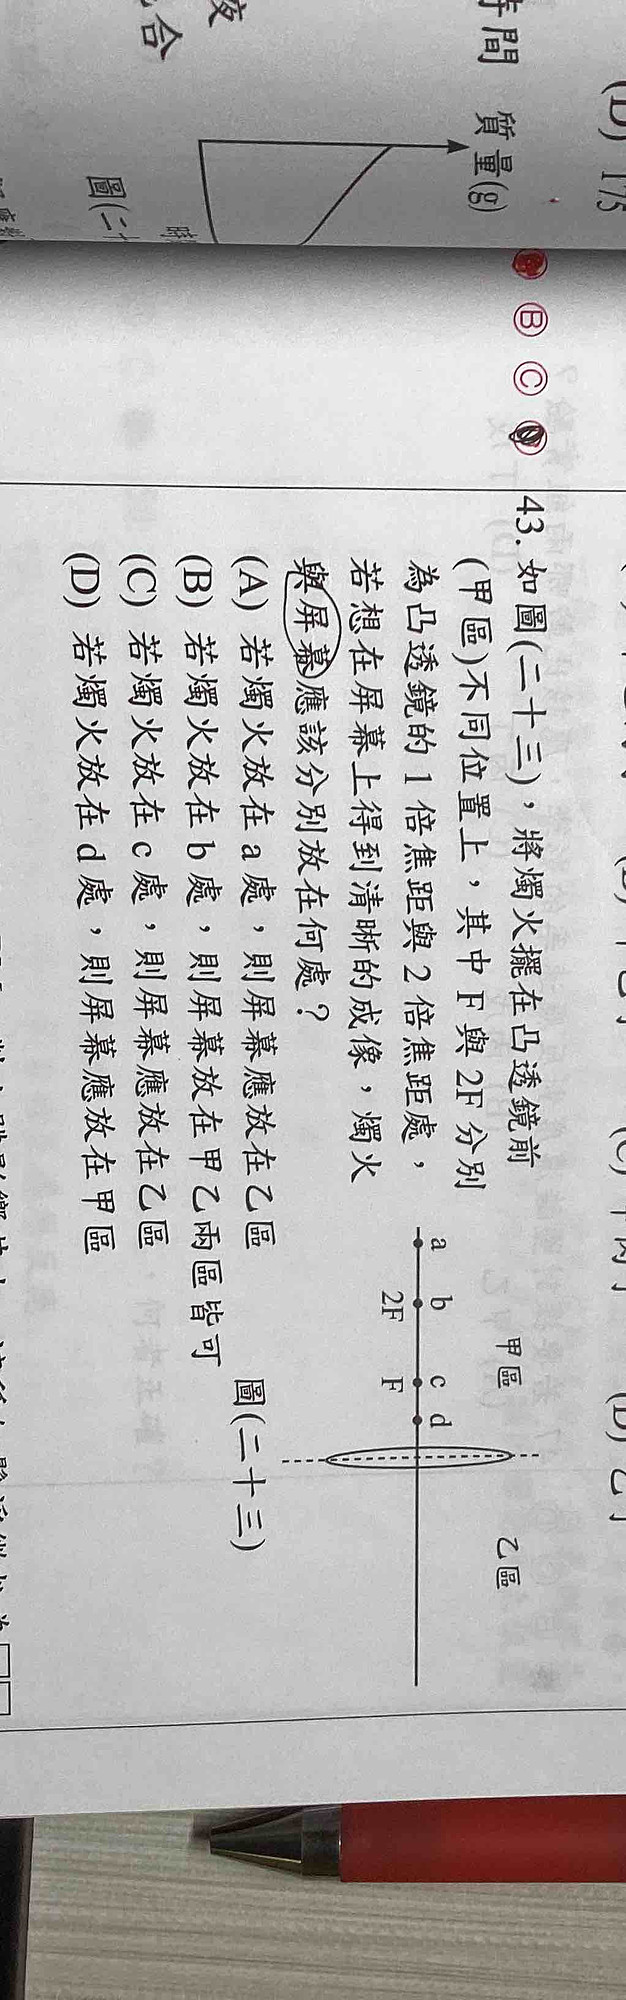 (D) 175
間 質量(g)
夜
合
圖(二十
Ⓑ Ⓒ
43. 如圖(二十三)，將燭火擺在凸透鏡前
(甲區)不同位置上，其中 F 與 2F 分別
為凸透鏡的 1 倍焦距與 2 倍焦距處，
若想在屏幕上得到清晰的成像，燭火
與屏幕應該分別放在何處？
(A) 若燭火放在 a 處，則屏幕應放在乙區
(B) 若燭火放在 b 處，則屏幕放在甲乙兩區皆可
(C) 若燭火放在 c 處，則屏幕應放在乙區
(D) 若燭火放在 d 處，則屏幕應放在甲區
甲區 乙區
a b c d
2F F
圖(二十三)